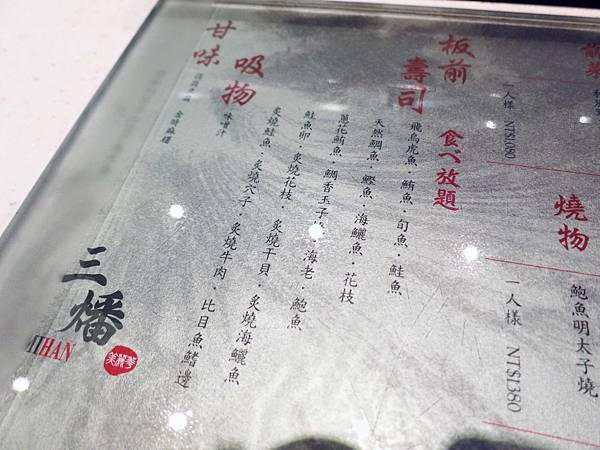 一人様 NT$1,080
燒物
鮑魚明太子燒
一人様 NT$1380
板前
壽司 食べ放題
飛烏虎魚・鮪魚・旬魚・鮭魚
天然鯛魚・鰹魚・海鱺魚・花枝
蔥花鮪魚・鯛香玉子燒・海老・鮑魚
鮭魚卵・炙燒花枝・炙燒干貝・炙燒海鱺魚
炙燒鮭魚・炙燒穴子・炙燒牛肉・比目魚鰭邊
吸物
味噌汁
甘味
三燔
HAN
美麗華